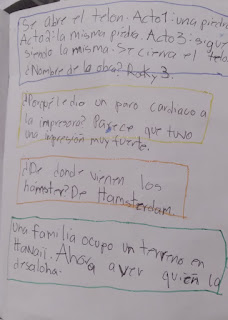 Se abre el telon. Acto1: una piedra
Acto2: la misma piedra. Acto 3: sigue
siendo la misma. Se cierra el telon
¿Nombre de la obra? Roky 3.
¿Porqué le dio un paro cardiaco a
la impresora? Parece que tuvo
una impresión muy fuerte.
¿De donde vienen los
hamster? De Hamsterdam.
una familia ocupo un terreno en
Hawaii. Ahora a ver quién la
desaloha.